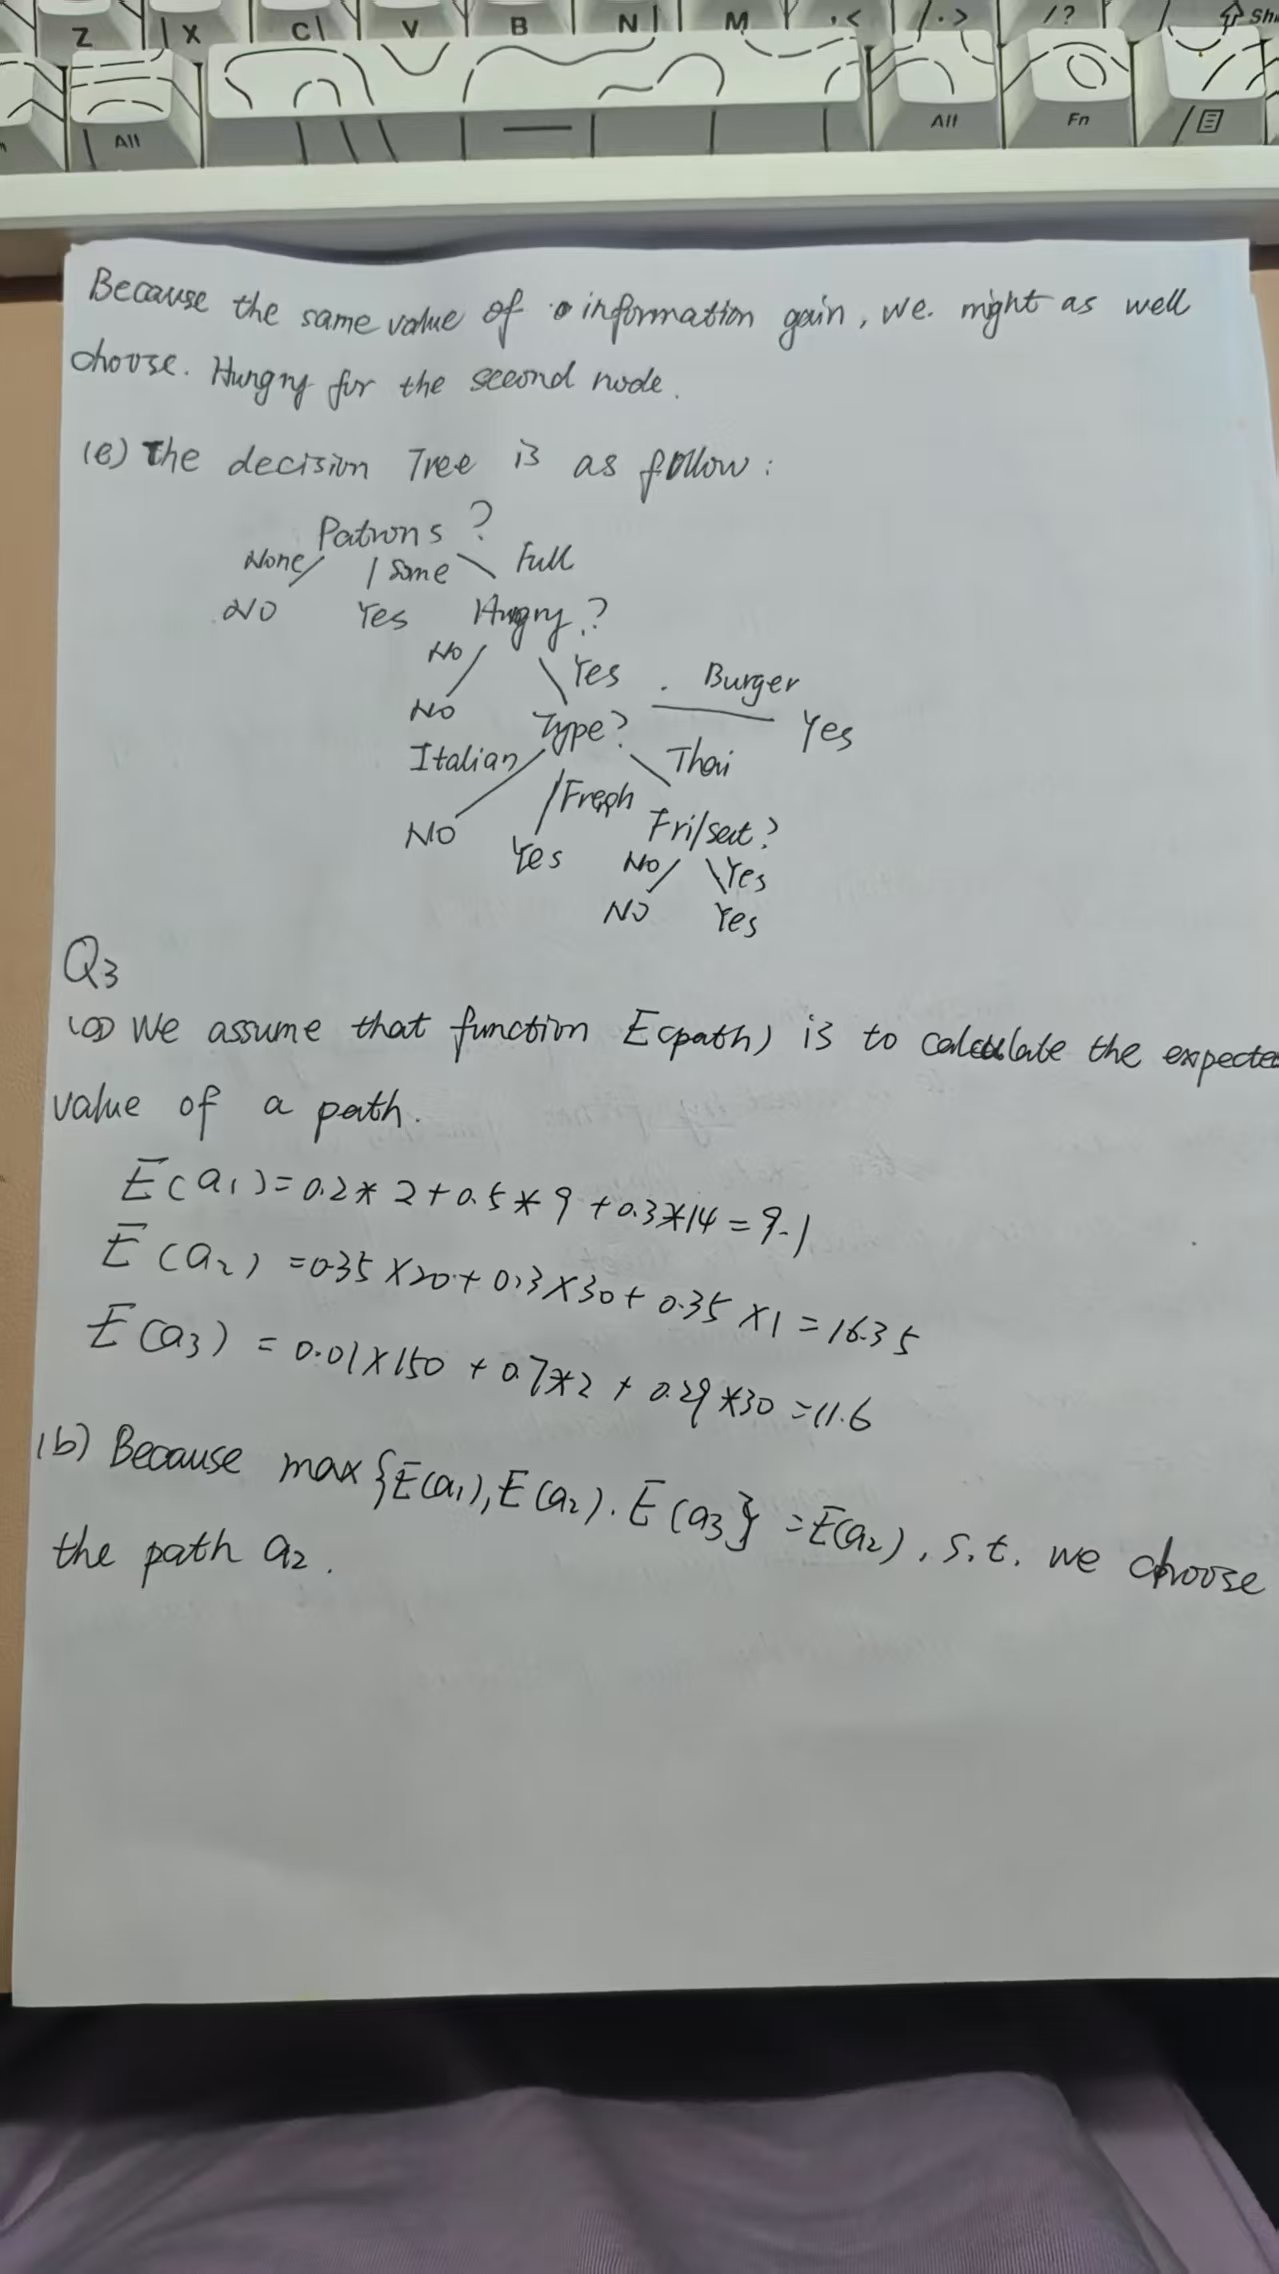 Z X C V B N M , < . > / ? Sh
Alt Alt Fn
Because the same value of information gain, we. might as well
choose. Hungry for the second node.
(e) The decision Tree is as follow:
Patrons ?
None Some Full
NO Yes Hungry?
No Yes Burger
No Type? Yes
Italian Freph Thai
NO Yes Fri/sat?
No Yes
NO Yes
Q3
(a) We assume that function E(path) is to calculate the expected
value of a path.
E(a1)=0.2*2+0.5*9+0.3*14=9.1
E(a2)=0.35×20+0.3×30+0.35×1=16.35
E(a3)=0.01×150+0.7*2+0.29*30=11.6
(b) Because max{E(a1),E(a2).E(a3} =E(a2), s.t. we choose
the path a2.